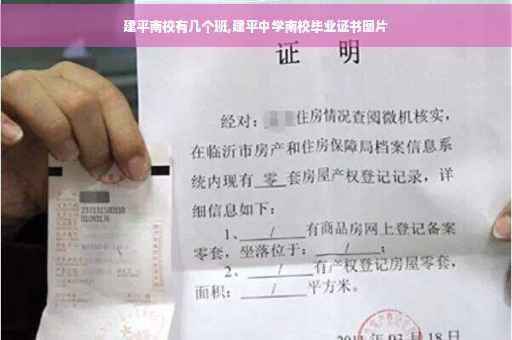 建平南校有几个班,建平中学南校毕业证书图片
证 明
经对： 住房情况查阅微机核实，
在临沂市房产和住房保障局档案信息系
统内现有 零 套房屋产权登记记录，详
细信息如下：
1、 / 有商品房网上登记备案
零套，坐落位于： / ；
2、 / 有产权登记房屋零套，
面积： / 平方米。
03月18日